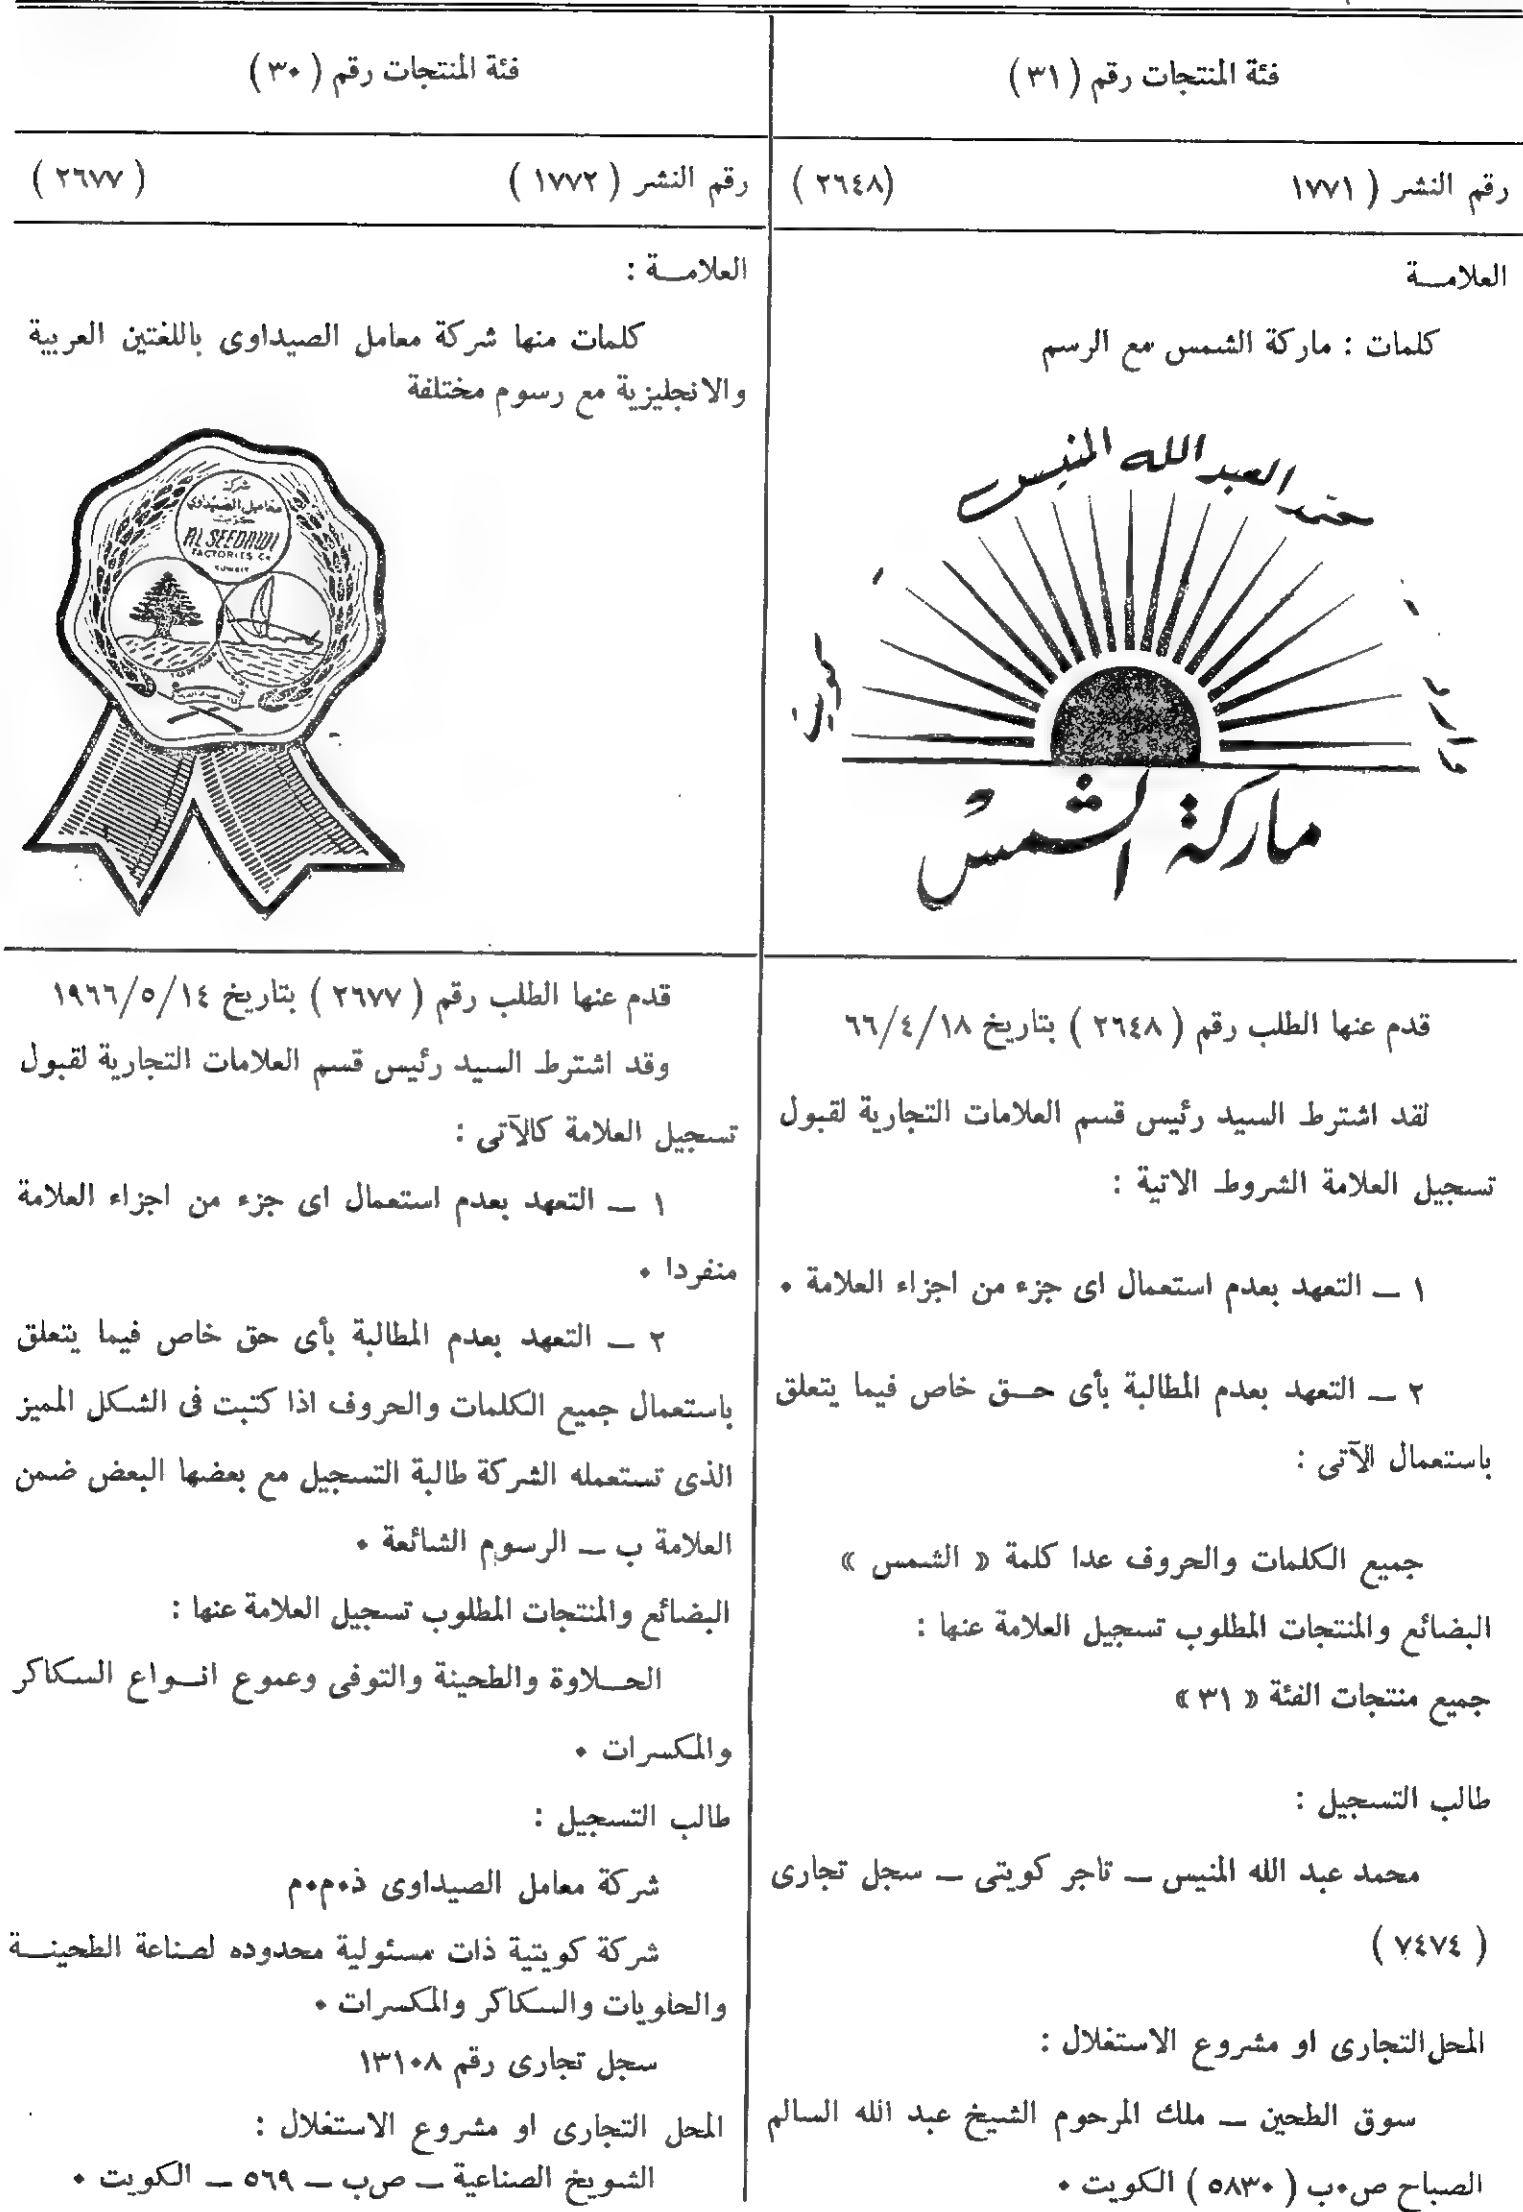 فئة المنتجات رقم ( ٣١ )
رقم النشر ( ١٧٧١ (٢٦٤٨ )
العلامـــة
كلمات : ماركة الشمس مع الرسم
حمد العبد الله المنيس
وارد
كويت
ماركة الشمس
قدم عنها الطلب رقم ( ٢٦٤٨ ) بتاريخ ٦٦/٤/١٨
لقد اشترط السيد رئيس قسم العلامات التجارية لقبول
تسجيل العلامة الشروط الاتية :
١ ــ التعهد بعدم استعمال اى جزء من اجزاء العلامة ٠
٢ ــ التعهد بعدم المطالبة بأى حـــق خاص فيما يتعلق
باستعمال الآتى :
جميع الكلمات والحروف عدا كلمة « الشمس »
البضائع والمنتجات المطلوب تسجيل العلامة عنها :
جميع منتجات الفئة « ٣١ »
طالب التسجيل :
محمد عبد الله المنيس ــ تاجر كويتى ــ سجل تجارى
( ٧٤٧٤ )
المحل التجارى او مشروع الاستغلال :
سوق الطحين ــ ملك المرحوم الشيخ عبد الله السالم
الصباح ص٠ب ( ٥٨٣٠ ) الكويت ٠
فئة المنتجات رقم ( ٣٠ )
رقم النشر ( ١٧٧٢ ) ( ٢٦٧٧ )
العلامـــة :
كلمات منها شركة معامل الصيداوى باللغتين العربية
والانجليزية مع رسوم مختلفة
شركة
معامل الصيداوي
كويت
AL SEEDAWI
FACTORIES Co
KUWAIT
قدم عنها الطلب رقم ( ٢٦٧٧ ) بتاريخ ١٩٦٦/٥/١٤
وقد اشترط السيد رئيس قسم العلامات التجارية لقبول
تسجيل العلامة كالآتى :
١ ــ التعهد بعدم استعمال اى جزء من اجزاء العلامة
منفردا ٠
٢ ــ التعهد بعدم المطالبة بأى حق خاص فيما يتعلق
باستعمال جميع الكلمات والحروف اذا كتبت فى الشكل المميز
الذى تستعمله الشركة طالبة التسجيل مع بعضها البعض ضمن
العلامة ب ــ الرسوم الشائعة ٠
البضائع والمنتجات المطلوب تسجيل العلامة عنها :
الحـــلاوة والطحينة والتوفى وعموع انـــواع السكاكر
والمكسرات ٠
طالب التسجيل :
شركة معامل الصيداوى ذ٠م٠م
شركة كويتية ذات مسئولية محدوده لصناعة الطحينـــة
والحلويات والسكاكر والمكسرات ٠
سجل تجارى رقم ١٣١٠٨
المحل التجارى او مشروع الاستغلال :
الشويخ الصناعية ــ ص٠ب ــ ٥٦٩ ــ الكويت ٠